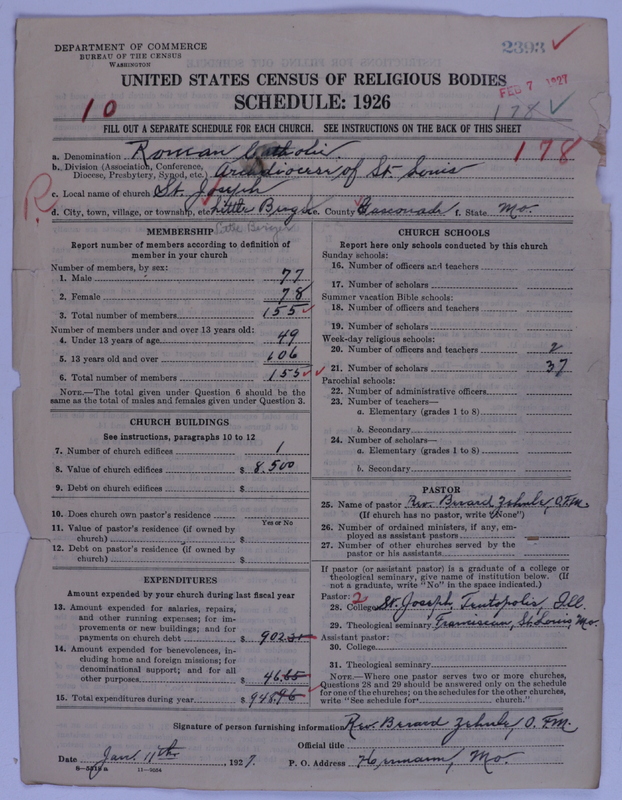 DEPARTMENT OF COMMERCE
BUREAU OF THE CENSUS
WASHINGTON
2393 ✓
UNITED STATES CENSUS OF RELIGIOUS BODIES
FEB 7 1927
SCHEDULE: 1926
10
178 ✓
FILL OUT A SEPARATE SCHEDULE FOR EACH CHURCH. SEE INSTRUCTIONS ON THE BACK OF THIS SHEET
178
a. Denomination Roman Catholic
b. Division (Association, Conference, Diocese, Presbytery, Synod, etc.) Archdiocese of St. Louis
R.
c. Local name of church St. Joseph
d. City, town, village, or township, etc. Little Berger e. County Gasconade f. State Mo.
Little Berger
MEMBERSHIP
Report number of members according to definition of
member in your church
Number of members, by sex:
1. Male 77
2. Female 78
3. Total number of members 155 ✓
Number of members under and over 13 years old:
4. Under 13 years of age 49
5. 13 years old and over 106
6. Total number of members 155 ✓ ✓
NOTE.—The total given under Question 6 should be the
same as the total of males and females given under Question 3.
CHURCH BUILDINGS
See instructions, paragraphs 10 to 12
7. Number of church edifices 1
8. Value of church edifices $ 8,500
9. Debt on church edifices $
10. Does church own pastor's residence
Yes or No
11. Value of pastor's residence (if owned by
church) $
12. Debt on pastor's residence (if owned by
church) $
EXPENDITURES
Amount expended by your church during last fiscal year
13. Amount expended for salaries, repairs,
and other running expenses; for im-
provements or new buildings; and for
payments on church debt $ 902.
14. Amount expended for benevolences, in-
cluding home and foreign missions; for
denominational support; and for all
other purposes $ 46.65
15. Total expenditures during year $
CHURCH SCHOOLS
Report here only schools conducted by this church
Sunday schools:
16. Number of officers and teachers
17. Number of scholars
Summer vacation Bible schools:
18. Number of officers and teachers
19. Number of scholars
Week-day religious schools:
20. Number of officers and teachers 2
21. Number of scholars 37
Parochial schools:
22. Number of administrative officers
23. Number of teachers—
a. Elementary (grades 1 to 8)
b. Secondary
24. Number of scholars—
a. Elementary (grades 1 to 8)
b. Secondary
PASTOR
25. Name of pastor Rev. Berard O.F.M.
(If church has no pastor, write "None")
26. Number of ordained ministers, if any, em-
ployed as assistant pastors
27. Number of other churches served by the
pastor or his assistants
If pastor (or assistant pastor) is a graduate of a college or
theological seminary, give name of institution below. (If
not a graduate, write "No" in the space indicated.)
Pastor: 2
28. College St. Joseph, Teutopolis, Ill.
29. Theological seminary Franciscan, St. Louis, Mo.
Assistant pastor:
30. College
31. Theological seminary
NOTE.—Where one pastor serves two or more churches,
Questions 28 and 29 should be answered only on the schedule
for one of the churches; on the schedules for the other churches,
write "See schedule for church."
Signature of person furnishing information Rev. Berard O.F.M.
Official title
Date Jan. 11th, 1927.
P. O. Address Hermann, Mo.
8-5318a 11-9064